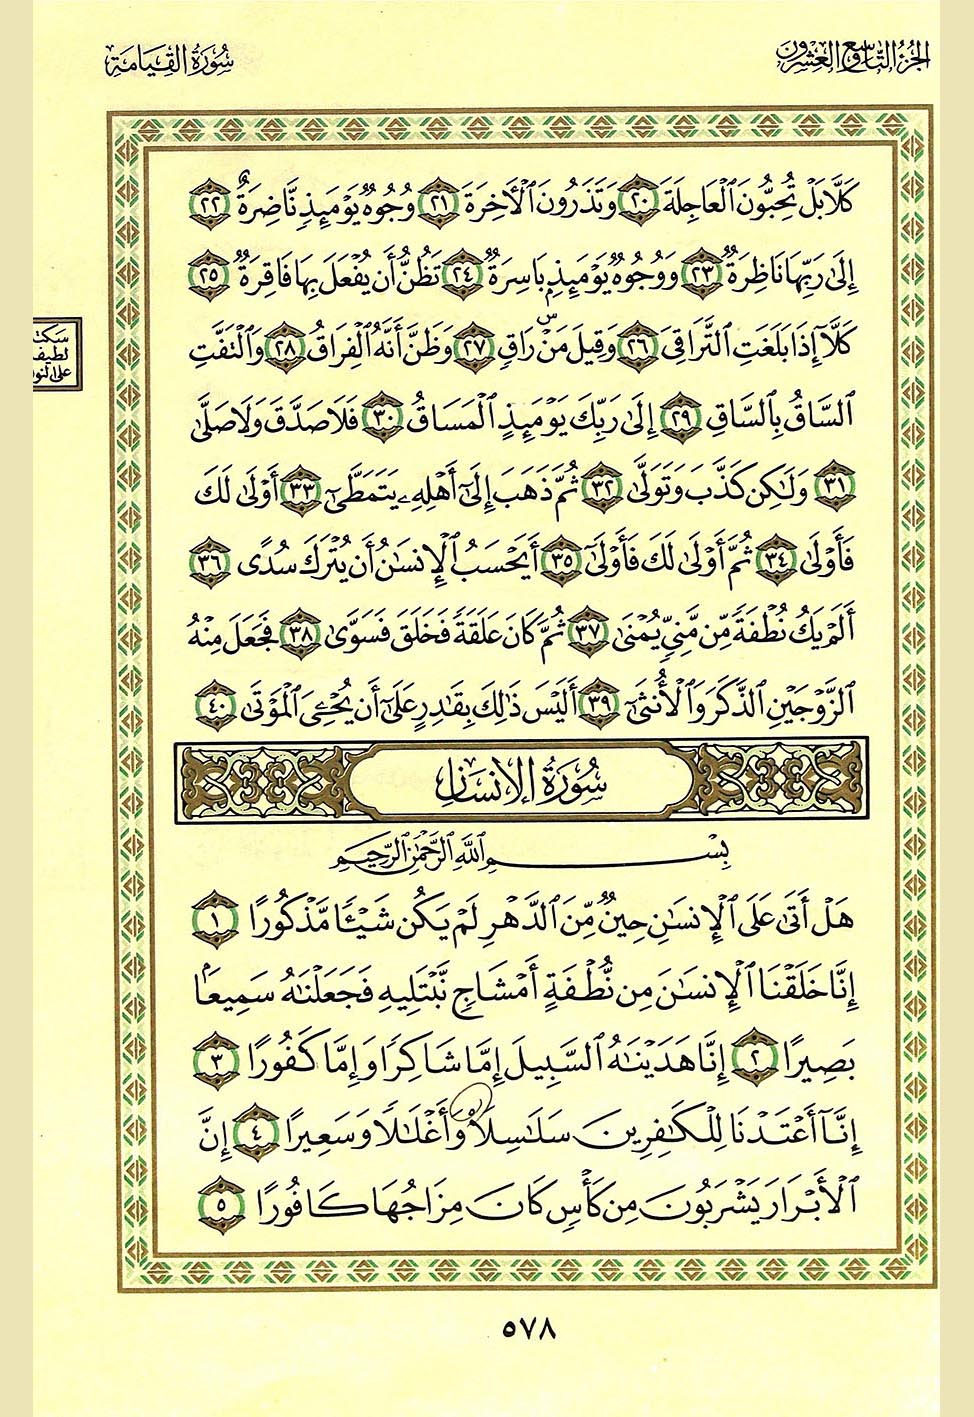 الجزء التاسع والعشرون
سورة القيامة
كَلَّا بَلْ تُحِبُّونَ ٱلْعَاجِلَةَ ٢٠ وَتَذَرُونَ ٱلْأَخِرَةَ ٢١ وُجُوهٌ يَوْمَئِذٍ نَّاضِرَةٌ ٢٢
إِلَىٰ رَبِّهَا نَاظِرَةٌ ٢٣ وَوُجُوهٌ يَوْمَئِذٍ بَاسِرَةٌ ٢٤ تَظُنُّ أَن يُفْعَلَ بِهَا فَاقِرَةٌ ٢٥
كَلَّآ إِذَا بَلَغَتِ ٱلتَّرَاقِىَ ٢٦ وَقِيلَ مَنْۜ رَاقٍ ٢٧ وَظَنَّ أَنَّهُ ٱلْفِرَاقُ ٢٨ وَٱلْتَفَّتِ
سكتة
لطيفة
على النون
ٱلسَّاقُ بِٱلسَّاقِ ٢٩ إِلَىٰ رَبِّكَ يَوْمَئِذٍ ٱلْمَسَاقُ ٣٠ فَلَا صَدَّقَ وَلَا صَلَّىٰ
٣١ وَلَـٰكِن كَذَّبَ وَتَوَلَّىٰ ٣٢ ثُمَّ ذَهَبَ إِلَىٰٓ أَهْلِهِۦ يَتَمَطَّىٰٓ ٣٣ أَوْلَىٰ لَكَ
فَأَوْلَىٰ ٣٤ ثُمَّ أَوْلَىٰ لَكَ فَأَوْلَىٰٓ ٣٥ أَيَحْسَبُ ٱلْإِنسَـٰنُ أَن يُتْرَكَ سُدًى ٣٦
أَلَمْ يَكُ نُطْفَةً مِّن مَّنِىٍّ يُمْنَىٰ ٣٧ ثُمَّ كَانَ عَلَقَةً فَخَلَقَ فَسَوَّىٰ ٣٨ فَجَعَلَ مِنْهُ
ٱلزَّوْجَيْنِ ٱلذَّكَرَ وَٱلْأُنثَىٰٓ ٣٩ أَلَيْسَ ذَٰلِكَ بِقَـٰدِرٍ عَلَىٰٓ أَن يُحْـِۧىَ ٱلْمَوْتَىٰ ٤٠
سورة الإنسان
بِسْمِ ٱللَّهِ ٱلرَّحْمَـٰنِ ٱلرَّحِيمِ
هَلْ أَتَىٰ عَلَى ٱلْإِنسَـٰنِ حِينٌ مِّنَ ٱلدَّهْرِ لَمْ يَكُن شَيْـًٔا مَّذْكُورًا ١
إِنَّا خَلَقْنَا ٱلْإِنسَـٰنَ مِن نُّطْفَةٍ أَمْشَاجٍ نَّبْتَلِيهِ فَجَعَلْنَـٰهُ سَمِيعًۢا
بَصِيرًا ٢ إِنَّا هَدَيْنَـٰهُ ٱلسَّبِيلَ إِمَّا شَاكِرًا وَإِمَّا كَفُورًا ٣
إِنَّآ أَعْتَدْنَا لِلْكَـٰفِرِينَ سَلَـٰسِلَا۟ وَأَغْلَـٰلًا وَسَعِيرًا ٤ إِنَّ
ٱلْأَبْرَارَ يَشْرَبُونَ مِن كَأْسٍ كَانَ مِزَاجُهَا كَافُورًا ٥
٥٧٨